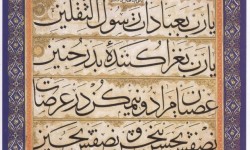 یارب بعبادات رسول الثقلین
یارب بغزا کنندهٔ بدر حنین
عصیان مرا دو نیمه کن در عرصات
نصفش بحسن ببخش و نصفش بحسین